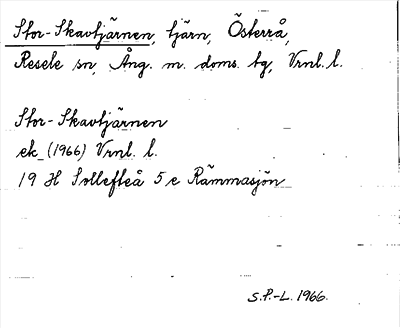 Stor-Skavtjärnen, tjärn, Österrå,
Resele sn, Ång. m. doms. tg, Vrnl. l.
Stor-Skavtjärnen
ek (1966) Vrnl. l.
19 H Sollefteå 5 e Rämmasjön
S.P.-L. 1966.